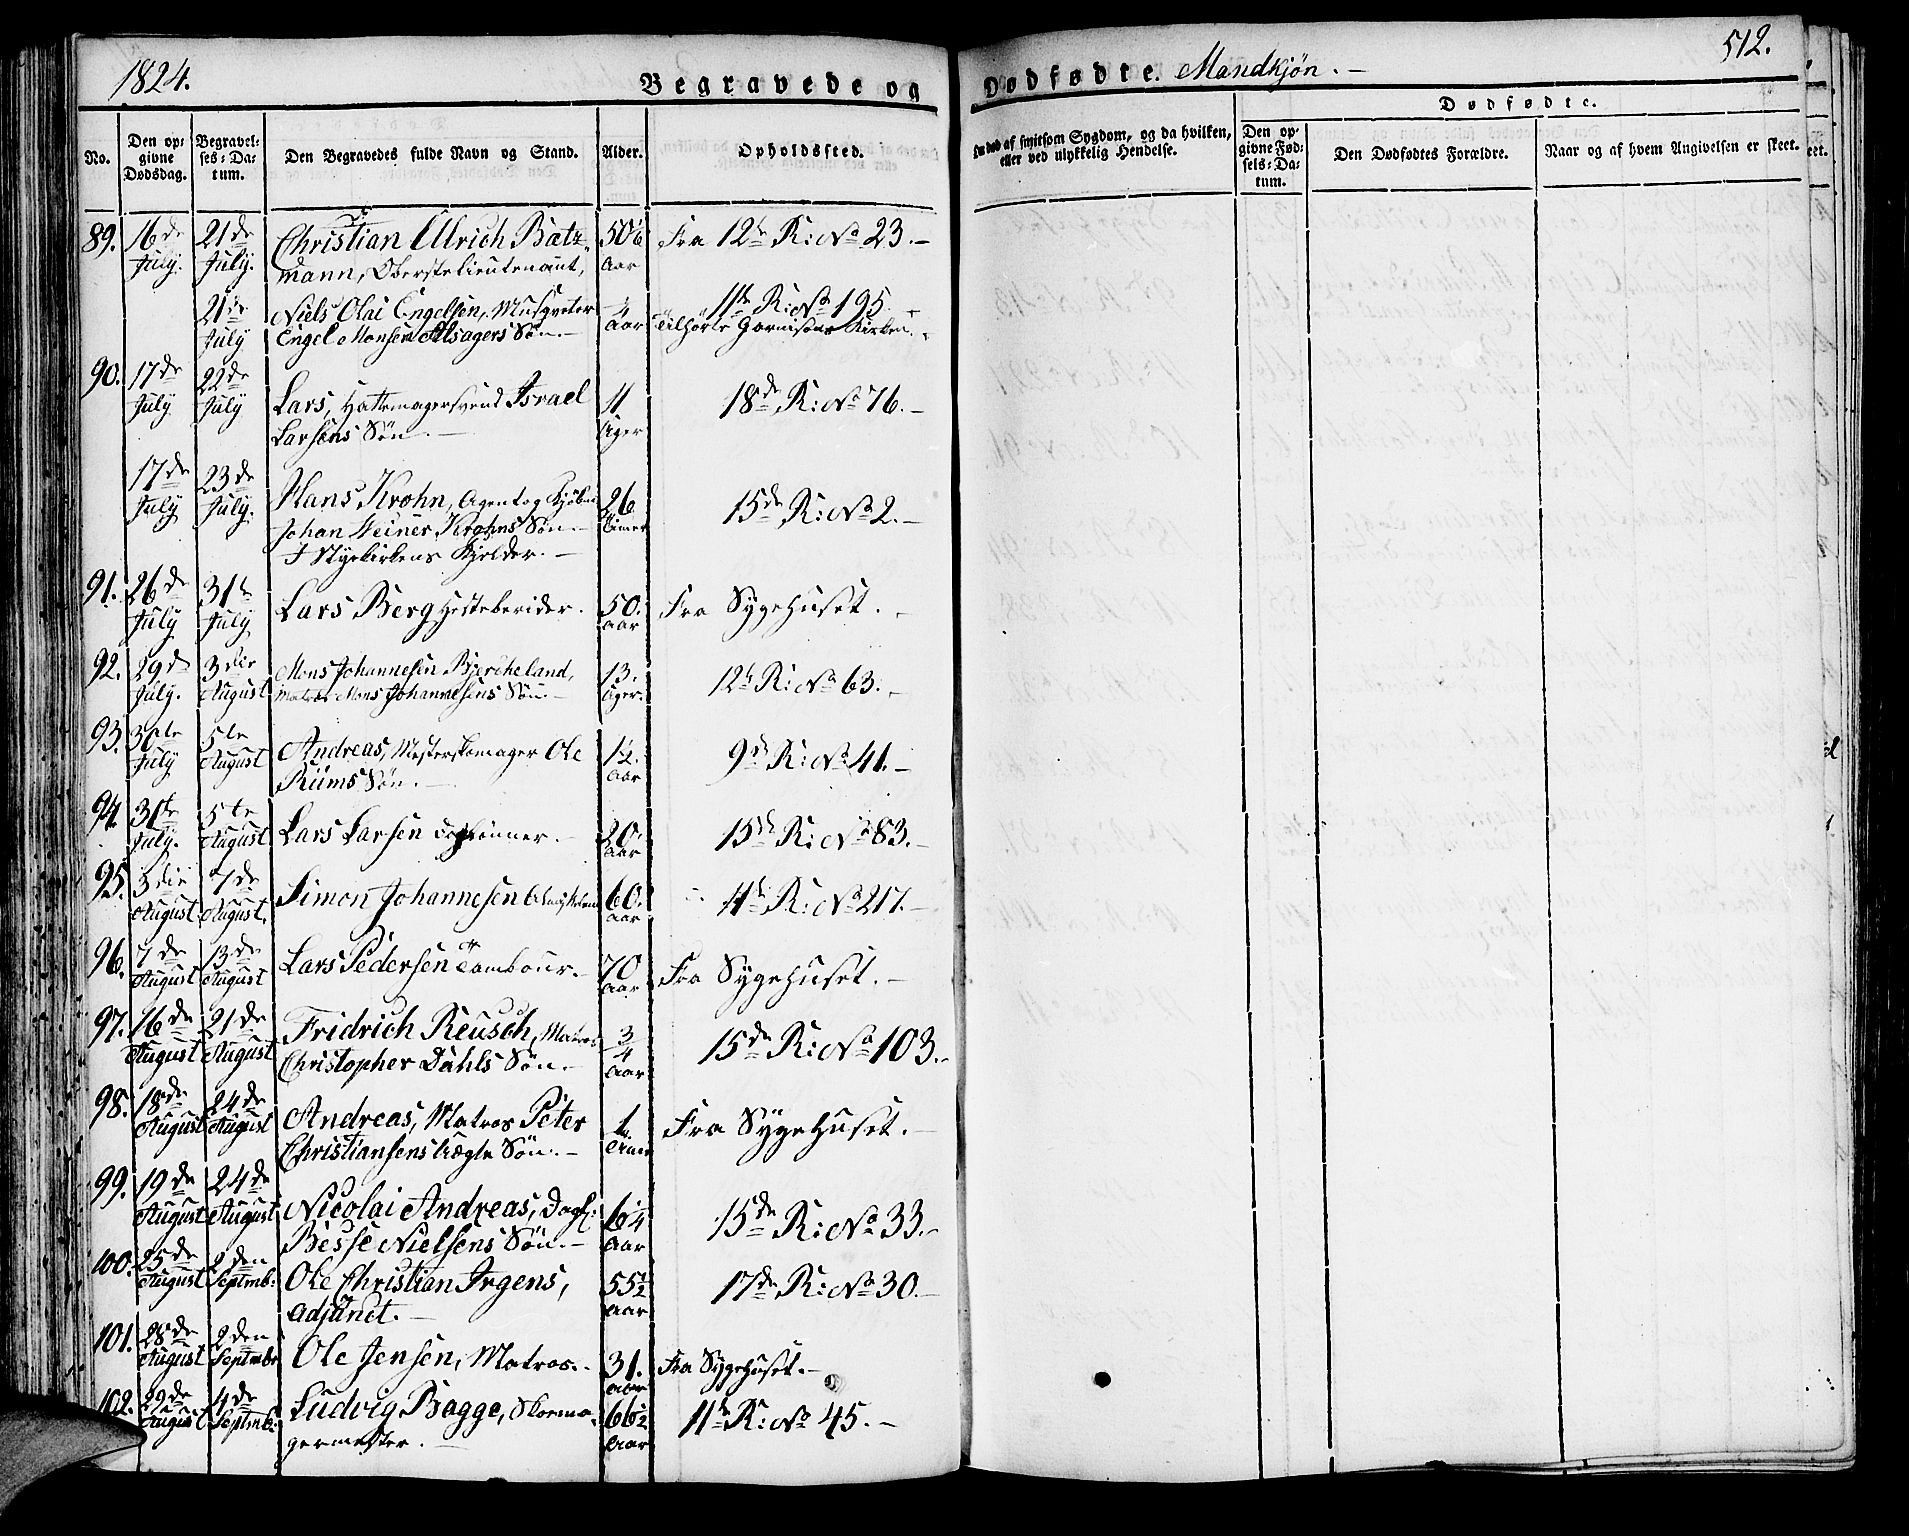 1824.
Begravede og
Dødfødte. Mandkjøn. —
512.
No.
Den op-
givne
Dødsdag.
Begravel-
ses-Da-
tum.
Den Begravedes fulde Navn og Stand.
Alder.
Opholdssted.
Om død af smitsom Sygdom, og da hvilken,
eller ved ulykkelig Hendelse.
Dødfødte.
Den op-
givne Fød-
sels-Da-
tum.
Den Dødfødtes Forældre.
Naar og af hvem Angivelsen er skeet.
89. 16de July. 21de July. Christian Ulrich Batz-
mann, Oberstelieutenant, Aar Fra 12te R: No 23. —
21de July Niels Olai Engelsen, Musqveter
Engel Monsen Alsagers Søn. — Aar 11te R: No 195. —
Tilhörte Garnisons Kirken.
90. 17de July 22de July Lars, Hattemagersvend Israel
Larsens Søn. — 11 Uger 18de R: No 76. —
17de July 23de July. Hans Krohn, Agent og Kjøbm
Johan Krohns Søn. —
I Nyekirkens Kjelder. — 26 Timer 15de R: No 2. —
91. 26de July 31te July Lars Berg Hesteberider. 50. Aar Fra Sygehuset. —
92. 29de July. 3die August Mons Johannesen Bjercheland,
Matros Mons Johannesens Søn. — 13. Uger. 12te R: No 63. —
93. 30te July 5te August Andreas, Mesterskomager Ole
Rüms Søn. — 1½. Aar 9de R: No 41. —
94. 31te July. 5te August Lars Larsen Dagl 20 Aar 15de R: No 83. —
95. 3die August 7de August. Simon Johannesen 60. Aar 11te R: No 217. —
96. 7de August 13de August Lars Pedersen Tambour. — 70 Aar Fra Sygehuset. —
97. 16de August 21de August Fridrich Reusch, Matros
Christopher Dahls Søn. — ¾ Aar 15de R: No 103. —
98. 18de August 24de August Andreas, Matros Peter
Christiansens Søn. — 1 Time Fra Sygehuset. —
99. 19de August 24de August Nicolai Andreas, Dagl:
Besse Nielsens Søn. — 6¼ Aar 15de R: No 33. —
100. 25de August 2den Septmb: Ole Christian Irgens,
Adjunct. — 55½ Aar 17de R: No 30. —
101. 28de August 2den Septmbr Ole Jensen, Matros. 31. Aar Fra Sygehuset. —
102. 29de August 4de Septmb: Ludvig Bagge, Skoma-
germester. — 66½ Aar 11te R: No 45. —